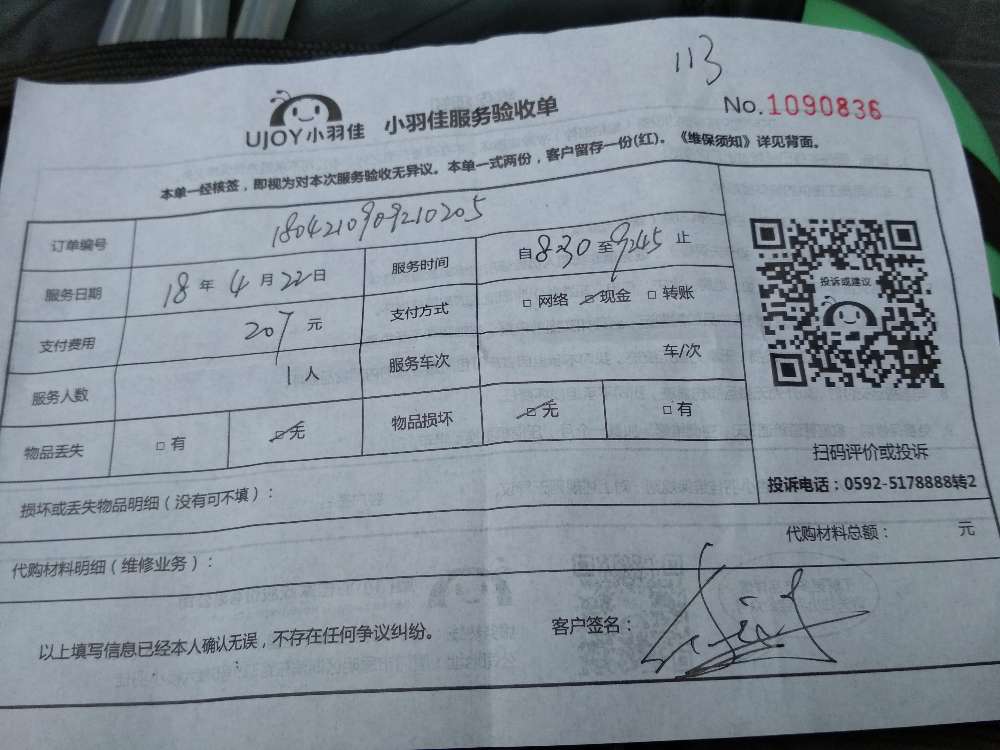 113
UJOY小羽佳 小羽佳服务验收单 No.1090836
本单一经核签，即视为对本次服务验收无异议。本单一式两份，客户留存一份(红)。《维保须知》详见背面。
订单编号 1804210909210205
服务日期 18年4月22日 服务时间 自830至9245止
支付费用 207元 支付方式 □网络 □现金 □转账
服务人数 1人 服务车次 车/次
物品丢失 □有 □无 物品损坏 □无 □有
投诉或建议
扫码评价或投诉
投诉电话：0592-5178888转2
损坏或丢失物品明细（没有可不填）：
代购材料明细（维修业务）： 代购材料总额： 元
以上填写信息已经本人确认无误，不存在任何争议纠纷。 客户签名：